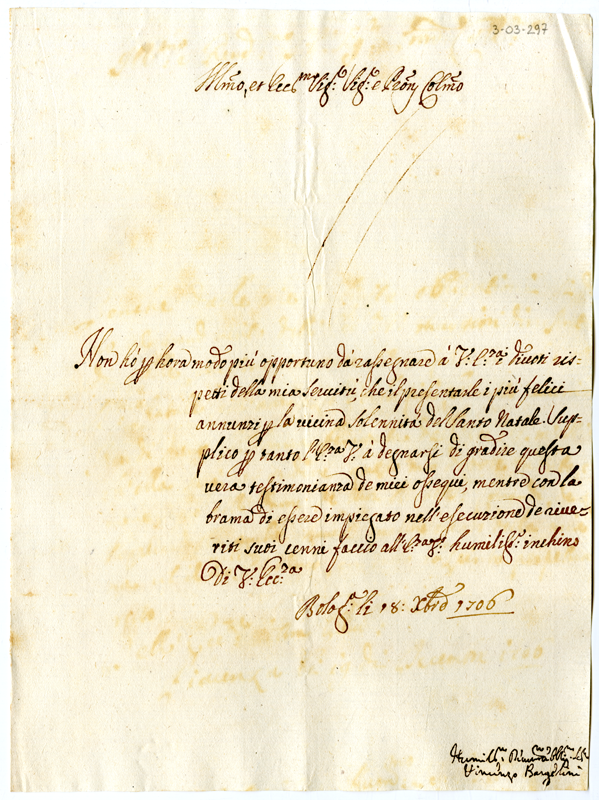 3-03-297
Ill.mo, et Ecc.mo Sig.r Sig.r e Pron Colmo
Non hò p hora modo più opportuno dà rassegnare à V. E.za i divoti ris-
petti della mia servitù, che il presentarle i più felici
annunzi p la vicina solennità del Santo Natale. Sup-
plico p tanto l'E.za V. à degnarsi di gradire questa
vera testimonianza de miei ossequi, mentre con la
brama di essere impiegato nell'esecuzione de rive-
riti suoi cenni faccio all'E.za V. humiliss.o inchino
Di V. Ecc.za
Bolog.a li 18: Xbre 1706
Humiliss.mo
Vincenzo Bargellini